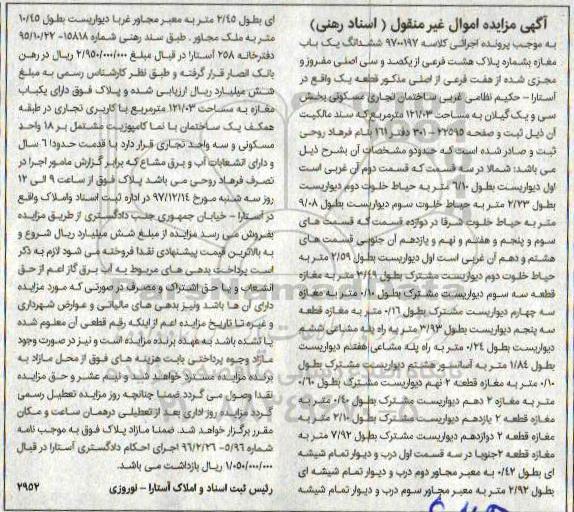 آگهی مزایده اموال غیر منقول ( اسناد رهنی)
به موجب پرونده اجرائی کلاسه ۹۷۰۰۱۹۷ ششدانگ یک باب
مغازه بشماره پلاک هشت فرعی از یکصد و سی اصلی مفروز و
مجزی شده از هفت فرعی از اصلی مذکور قطعه یک واقع در
آستارا – حکیم نظامی غربی ساختمان تجاری مسکونی بخش
سی و یک گیلان به مساحت ۱۲۱/۰۳ مترمربع که سند مالکیت
آن ذیل ثبت و صفحه ۲۲۵۹۵ – ۳۰۱ دفتر ۱۶۱ بنام فرهاد روحی
ثبت و صادر شده است که حدودو مشخصات آن بشرح ذیل
می باشد: شمالا در سه قسمت که قسمت دوم آن غربی است
اول دیواریست بطول ۶/۱۰ متر به حیاط خلوت دوم دیواریست
بطول ۲/۷۳ متر به حیاط خلوت سوم دیواریست بطول ۹/۰۸
متر به حیاط خلوت شرقا در دوازده قسمت که قسمت های
سوم و پنجم و هفتم و نهم و یازدهم آن جنوبی قسمت های
هشتم و دهم آن غربی است اول دیواریست بطول ۲/۵۹ متر به
حیاط خلوت دوم دیواریست مشترک بطول ۳/۶۹ متر به مغازه
قطعه سه سوم دیواریست مشترک بطول ۰/۱۰ متر به مغازه
سه چهارم دیواریست مشترک بطول ۰/۱۶ متر به مغازه قطعه
سه پنجم دیواریست بطول ۳/۹۳ متر به راه پله مشاعی ششم
دیواریست بطول ۰/۲۴ متر به راه پله مشاعی هفتم دیواریست
بطول ۱/۸۴ متر به آسانسور هشتم دیواریست مشترک بطول
۰/۱۰ متر به مغازه قطعه ۲ نهم دیواریست مشترک بطول ۰/۱۰
متر به مغازه ۲ دهم دیواریست مشترک بطول ۰/۴۰ متر به
مغازه قطعه ۲ یازدهم دیواریست مشترک بطول ۲/۱۰ متر به
مغازه قطعه ۲ دوازدهم دیواریست مشترک بطول ۷/۹۲ متر به
مغازه قطعه ۲جنوبا در سه قسمت اول درب و دیوار تمام شیشه
ای بطول ۰/۴۲ به معبر مجاور دوم درب و دیوار تمام شیشه ای
بطول ۲/۹۲ متر به معبر مجاور سوم درب و دیوار تمام شیشه
ای بطول ۲/۴۵ متر به معبر مجاور غربا دیواریست بطول ۱۰/۴۵
متر به ملک مجاور . طبق سند رهنی شماره ۱۵۸۱۸–۹۵/۱۰/۲۲
دفترخانه ۲۵۸ آستارا در قبال مبلغ ۲/۹۵۰/۰۰۰/۰۰۰ ریال در رهن
بانک انصار قرار گرفته و طبق نظر کارشناس رسمی به مبلغ
شش میلیارد ریال ارزیابی شده و پلاک فوق دارای یکباب
مغازه به مساحت ۱۲۱/۰۳ مترمربع با کاربری تجاری در طبقه
همکف یک ساختمان با نما کامپوزیت مشتمل بر ۱۸ واحد
مسکونی و سه واحد تجاری قرار دارد با قدمت حدودا ۶ سال
و دارای انشعابات آب و برق مشاع که برابر گزارش مامور اجرا در
تصرف فرهاد روحی می باشد پلاک فوق از ساعت ۹ الی ۱۲
روز سه شنبه مورخ ۹۷/۱۲/۱۴ در اداره ثبت اسناد واملاک واقع
در آستارا – خیابان جمهوری جنب دادگستری از طریق مزایده
بفروش می رسد مزایده از مبلغ شش میلیارد ریال شروع و
به بالاترین قیمت پیشنهادی نقدا فروخته می شود لازم به ذکر
است پرداخت بدهی های مربوط به آب برق گاز اعم از حق
انشعاب و یا حق اشتراک و مصرف در صورتی که مورد مزایده
دارای آن ها باشد ونیز بدهی های مالیاتی و عوارض شهرداری
و غیره تا تاریخ مزایده اعم از اینکه رقم قطعی آن معلوم شده
یا نشده باشد به عهده برنده مزایده است و نیز در صورت وجود
مازاد وجوه پرداختی بابت هزینه های فوق از محل مازاد به
برنده مزایده مسترد خواهد شد و نیم عشر و حق مزایده
نقدا وصول می گردد ضمنا چنانچه روز مزایده تعطیل رسمی
گردد مزایده روز اداری بعد از تعطیلی درهمان ساعت و مکان
مقرر برگزار خواهد شد. ضمنا مازاد پلاک فوق به موجب نامه
شماره ۵/۹۶–۹۶/۲/۲۶ اجرای احکام دادگستری آستارا در قبال
۱/۰۵۰/۰۰۰/۰۰۰ ریال بازداشت می باشد.
رئیس ثبت اسناد و املاک آستارا – نوروزی ۲۹۵۲